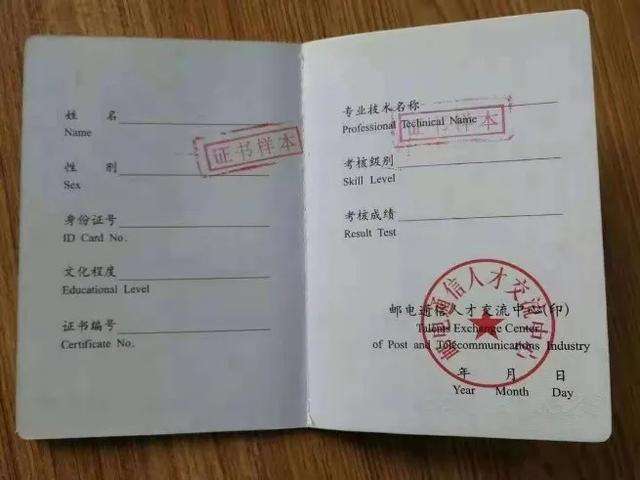 姓 名
Name
证书样本
性 别
Sex
身份证号
ID Card No.
文化程度
Educational Level
证书编号
Certificate No.
专业技术名称
Professional Technical Name
证书样本
考核级别
Skill Level
考核成绩
Result Test
邮电通信人才交流中心(印)
Talents Exchange Center
of Post and Telecommunications Industry
邮电通信人才交流中心
年 月 日
Year Month Day